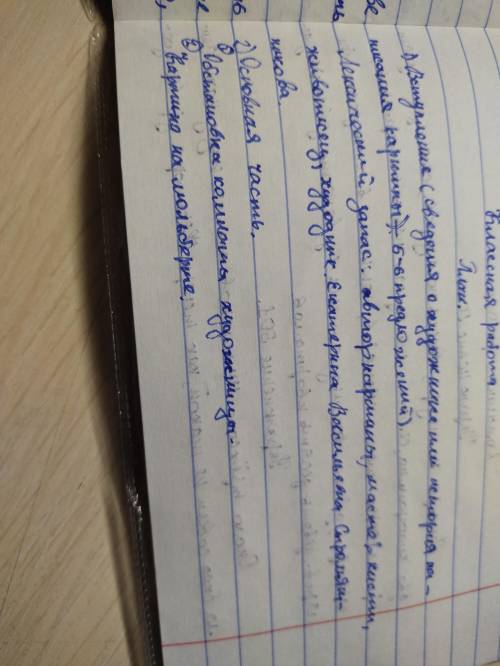 Классная работа
План.
1) Вступление (сведения о художнике или история на-
писания картины) 5-6 предложений)
Лексический запас: автор картины, мастер кисти,
живописец, художник Екатерина Васильевна
никова
2) Основная часть.
Обстановка комнаты художницы.
Картина на мольберте.